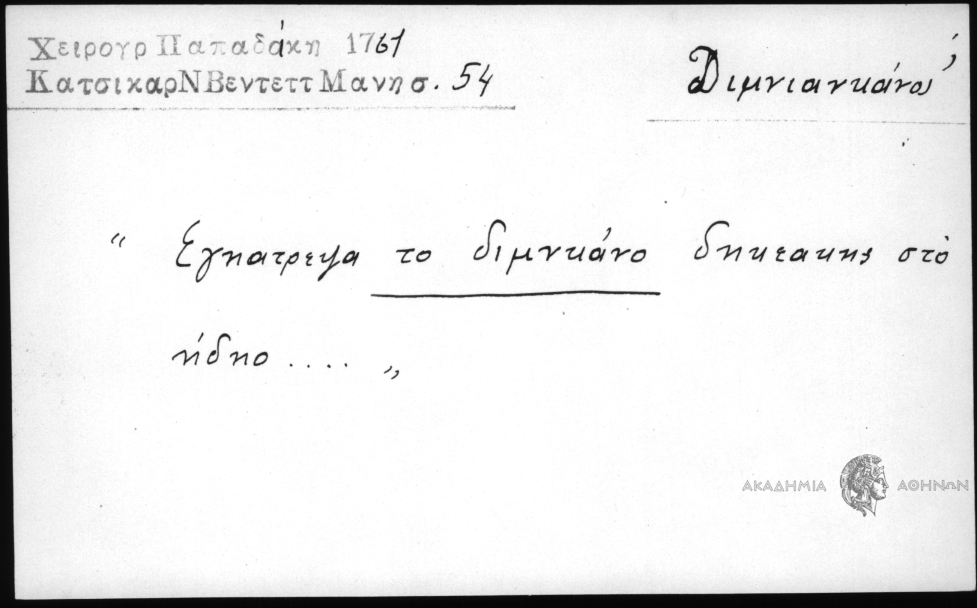 Χειρογρ Παπαδάκη 1761
ΚατσικαρΝ Βεντεττ Μανησ. 54
Διμνιανκάνο
“ Εγηατρεψα το διμνκάνο δηκεακης στὸ
ήδηο .... „
ΑΚΑΔΗΜΙΑ ΑΘΗΝΩΝ